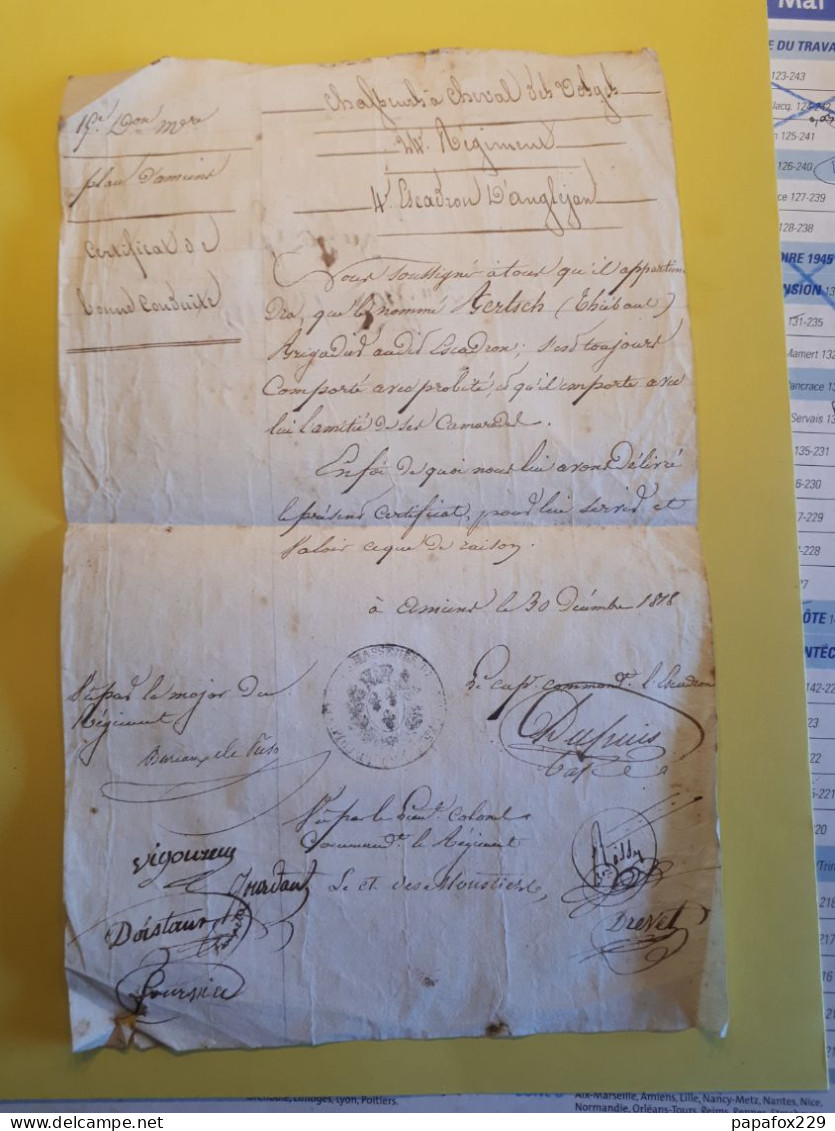 Mai
15e Don Mre
place d'amiens
Certificat de
bonne Conduite
Chasseurs à Cheval des Vosges
24e Régiment
4e Escadron D'Anglejan
Nous soussigné à tous qu'il appartien
Dra, que le nommé Gertsch (Thiébaut)
Brigadier audit Escadron, s'est toujours
Comporté avec probité, et qu'il emporte avec
lui l'amitié de ses Camarades.
En foi de quoi nous lui avons délivré
le présent certificat, pour lui servir et
Valoir ce que de raison.
à Amiens le 30 Décembre 1818
Le capne commandt l'Escadron
Dupuis
Cape
Vu par le major du
Régiment
Vu par le Lieut. Colonel
Commandt le Régiment
Le Ct des Moustiers
Vigouroux
Jourdant
Doistau
Fournier
Drevet
E DU TRAVA
123-243
Jacq. 124-242
125-241
126-240
127-239
128-238
OIRE 1945
NSION
131-235
Mamert 132
Pancrace 133
Servais 134
135-231
6-230
7-229
-228
ÔTE
NTÉC
142-22
Grenoble, Limoges, Lyon, Poitiers.
Aix-Marseille, Amiens, Lille, Nancy-Metz, Nantes, Nice,
Normandie, Orléans-Tours, Reims, Rennes, Strasb
papafox229